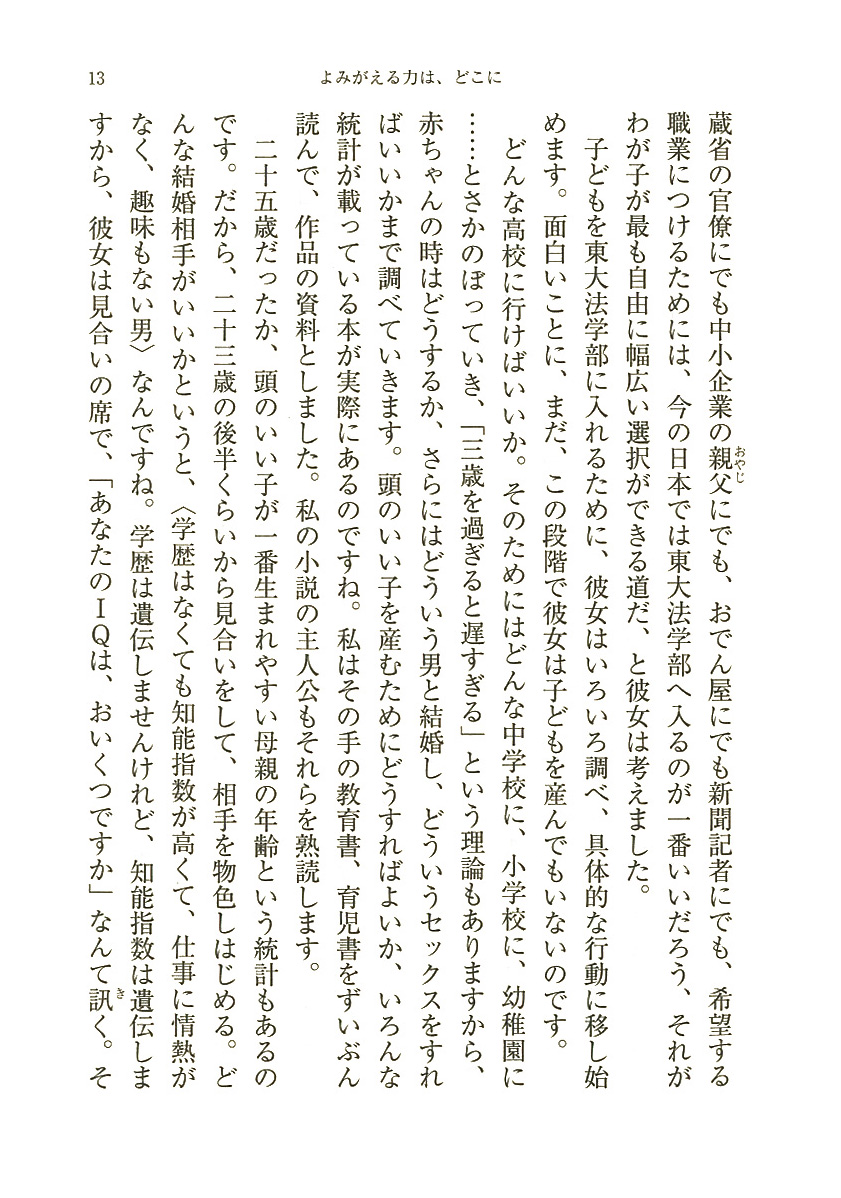 13
よみがえる力は、どこに
蔵省の官僚にでも中小企業の親父にでも、おでん屋にでも新聞記者にでも、希望する
おやじ
職業につけるためには、今の日本では東大法学部へ入るのが一番いいだろう、それが
わが子が最も自由に幅広い選択ができる道だ、と彼女は考えました。
子どもを東大法学部に入れるために、彼女はいろいろ調べ、具体的な行動に移し始
めます。面白いことに、まだ、この段階で彼女は子どもを産んでもいないのです。
どんな高校に行けばいいか。そのためにはどんな中学校に、小学校に、幼稚園に
……とさかのぼっていき、「三歳を過ぎると遅すぎる」という理論もありますから、
赤ちゃんの時はどうするか、さらにはどういう男と結婚し、どういうセックスをすれ
ばいいかまで調べていきます。頭のいい子を産むためにどうすればよいか、いろんな
統計が載っている本が実際にあるのですね。私はその手の教育書、育児書をずいぶん
読んで、作品の資料としました。私の小説の主人公もそれらを熟読します。
二十五歳だったか、頭のいい子が一番生まれやすい母親の年齢という統計もあるの
です。だから、二十三歳の後半くらいから見合いをして、相手を物色しはじめる。ど
んな結婚相手がいいかというと、〈学歴はなくても知能指数が高くて、仕事に情熱が
なく、趣味もない男〉なんですね。学歴は遺伝しませんけれど、知能指数は遺伝しま
すから、彼女は見合いの席で、「あなたのIQは、おいくつですか」なんて訊く。そ
き